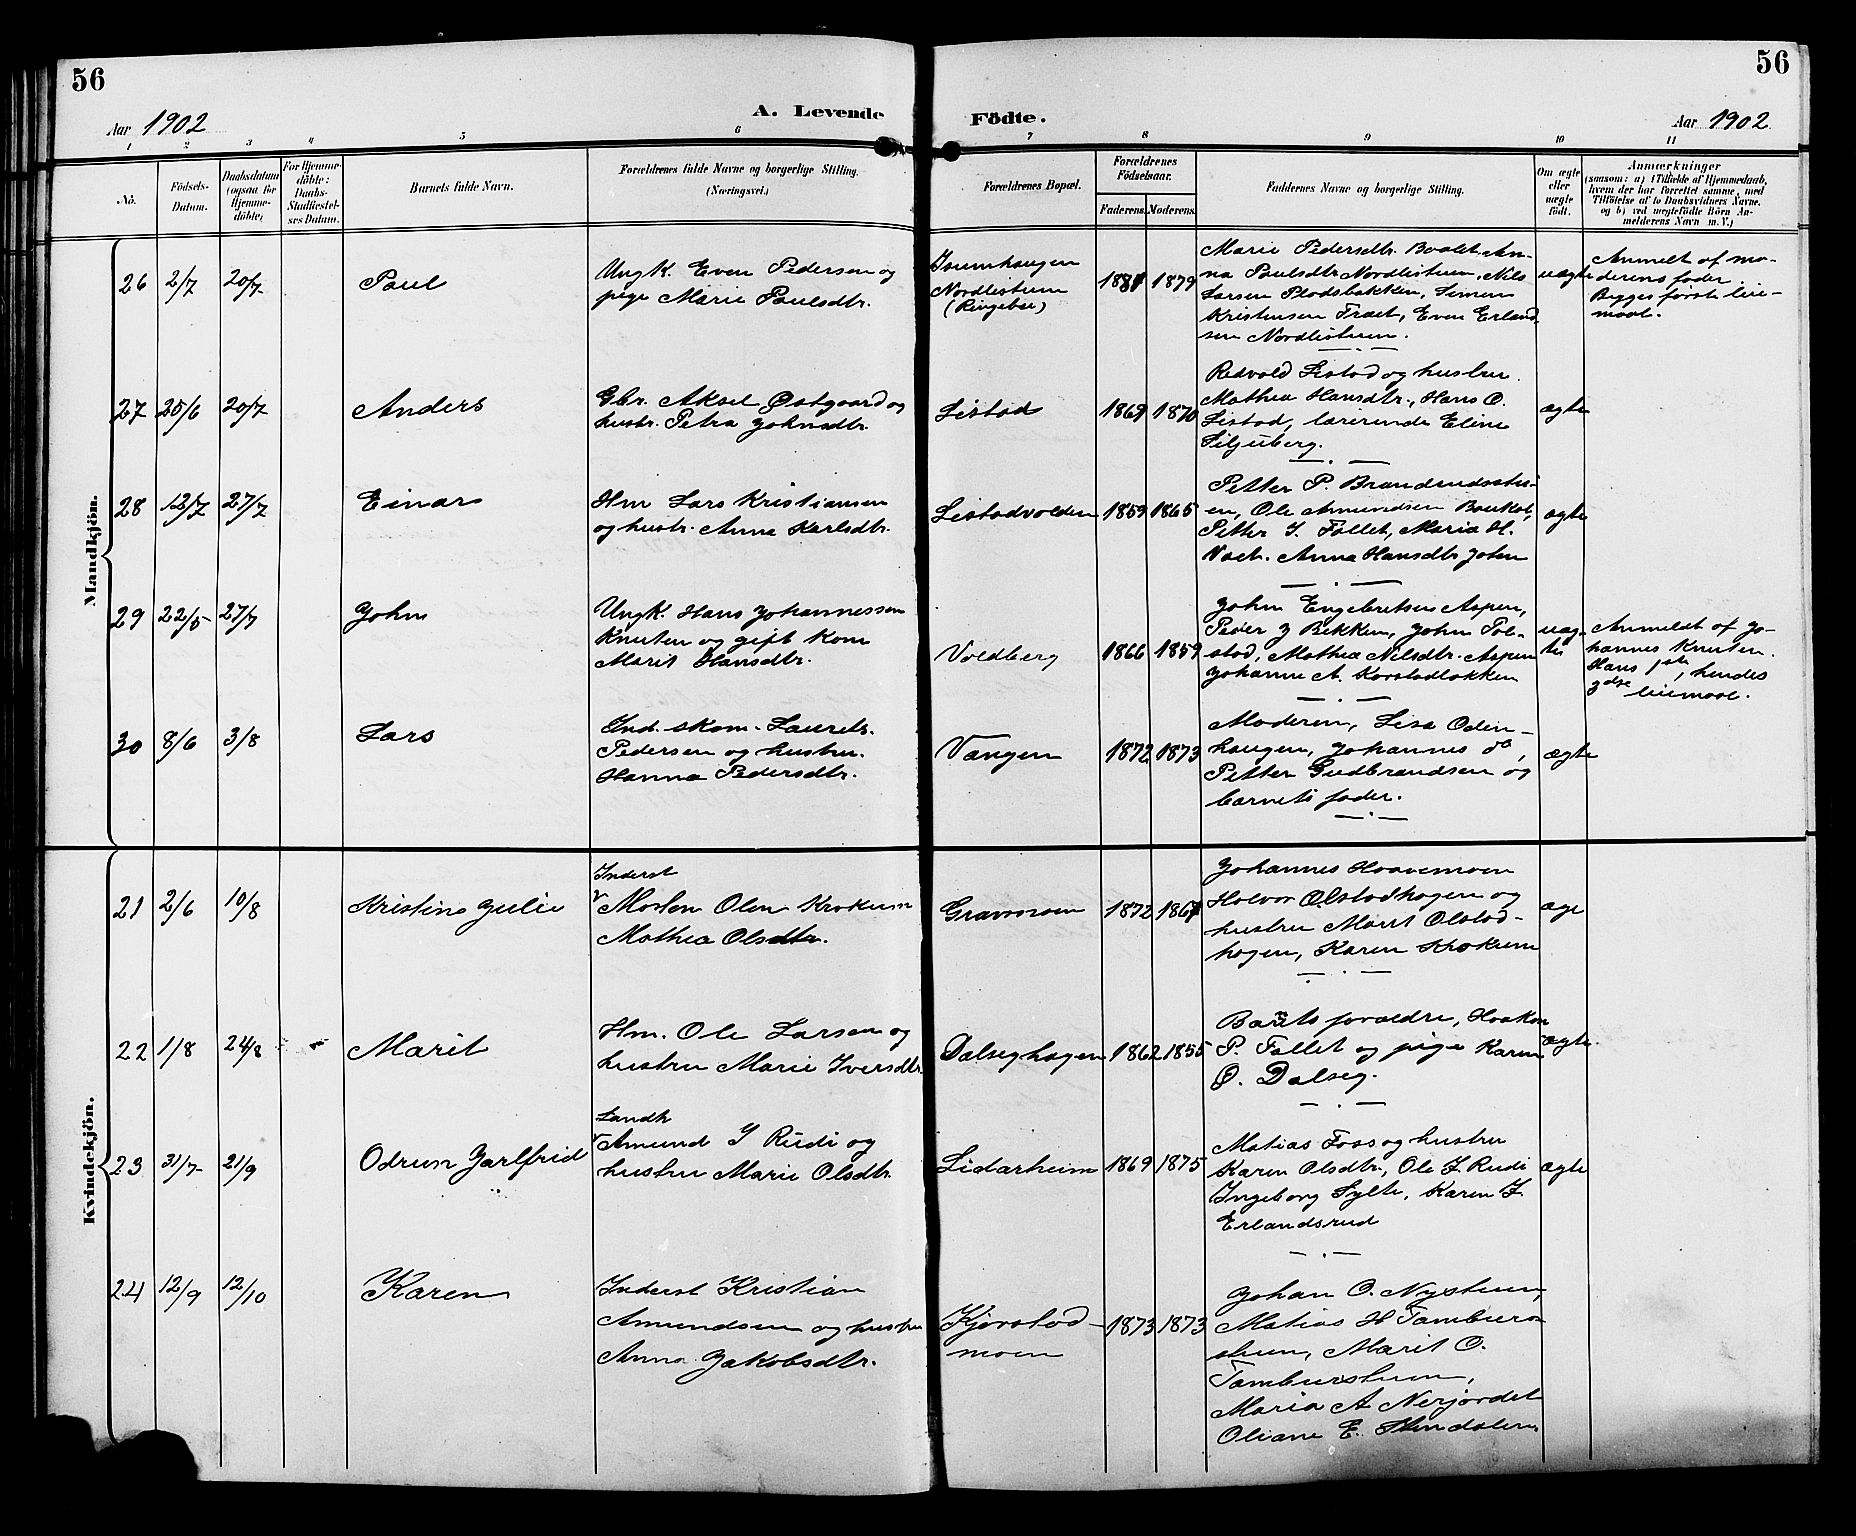 56
56
Aar 1902
A. Levende
Födte.
Aar 1902
1 2 3 4 5 6 7 8 9 10 11
No.
Födsels-
Datum.
Daabsdatum
(ogsaa for
Hjemme-
döbte)
For Hjemme-
döbte:
Daabs-
Stadfæstel-
ses Datum.
Barnets fulde Navn.
Forældrenes fulde Navne og borgerlige Stilling.
(Næringsvei.)
Forældrenes Bopæl.
Forældrenes
Födselsaar.
Faderens. Moderens.
Faddernes Navne og borgerlige Stilling.
Om ægte
eller
uægte
födt.
Anmærkninger
(saasom: a) i Tilfælde af Hjemmedaab,
hvem der har forrettet samme, med
Tilföielse af to Daabsvidners Navne,
og b) ved uægtefödte Börn An-
melderens Navn m. V.)
Mandkjön.
26 2/7 20/7 Paul
Ungk. Even Pedersen og
pige Marie Paulsdtr.
Nordlistuen
(Ringebu)
1881 1879
Marie Pedersdtr. An-
na Paulsdtr Nordlistuen, Nils
Larsen Simen
Kristensen Even Erland-
sen Nordlistuen.
uægte
Anmelt af mo-
derens fader.
Begges første leie-
maal.
27 25/6 20/7 Anders
Gbr. Aksel Østgaard og
hustr. Petra Johnsdtr.
Listad
1869 1870
Redvald Listad og hustru
Mathea Hansdtr., Hans O.
Listad, lærerinde Eline
Siljuberg.
ægte
28 12/7 27/7 Einar
Hm Lars Kristiansen
og hustr. Anna Karlsdtr.
Listadvolden
1859 1865
Petter P.
en, Ole Amundsen
Petter J. Follet, Maria H.
Anna Hansdtr John
ægte
29 22/5 27/7 John
Ungk. Hans Johannessen
Knuten og gift kone
Marit Hansdtr.
Voldberg
1866 1859
John Engebretsen Aspen,
Peder J Bekken, John Tol-
stad, Mathea Nilsdtr. Aspen
Johanne A. Korstadløkken
uæg-
te
Anmeldt af Jo-
hannes Knuten.
Hans 1ste, hendes
2det leiemaal.
30 8/6 3/8 Lars
Ind. skom. Laurits
Pedersen og hustru
Hanna Pedersdtr.
Vangen
1872 1873
Moderen, Lisa Oden-
haugen, Johannes do,
Petter Gudbrandsen og
barnets fader.
ægte
Kvindekjön.
21 2/6 10/8 Kristine Julie
Inderst
Morten Olsen Krokum
Mathea Olsdtr.
Gravmoen
1872 1867
Johannes Haavemoen
Halvor Olstadhagen og
hustru Marit Olstad-
hagen, Karen Krokum
22 1/8 24/8 Marit
Hm. Ole Larsen og
hustru Marie Iversdtr.
Dalseghagen
1862 1855
Barnets forældre, Haakon
P. Follet og pige Karen
O. Dalseg.
ægte.
23 31/7 21/9 Odrun Jarlfrid
Landh
Amund J Rudi og
hustru Marie Olsdtr.
Lidarheim
1869 1875
Matias Foss og hustru
Karen Olsdtr., Ole J. Rudi
Ingeborg Sylte, Karen J.
Erlandsrud
ægte
24 12/9 12/10 Karen
Inderst Kristian
Amundsen og hustru
Anna Jakobsdtr.
Kjørstad-
moen
1873 1873
Johan O. Nystuen,
Matias H Tambur-
stuen, Marit O.
Tamburstuen,
Maria A Nerjordet
Oliane E. Stendalen